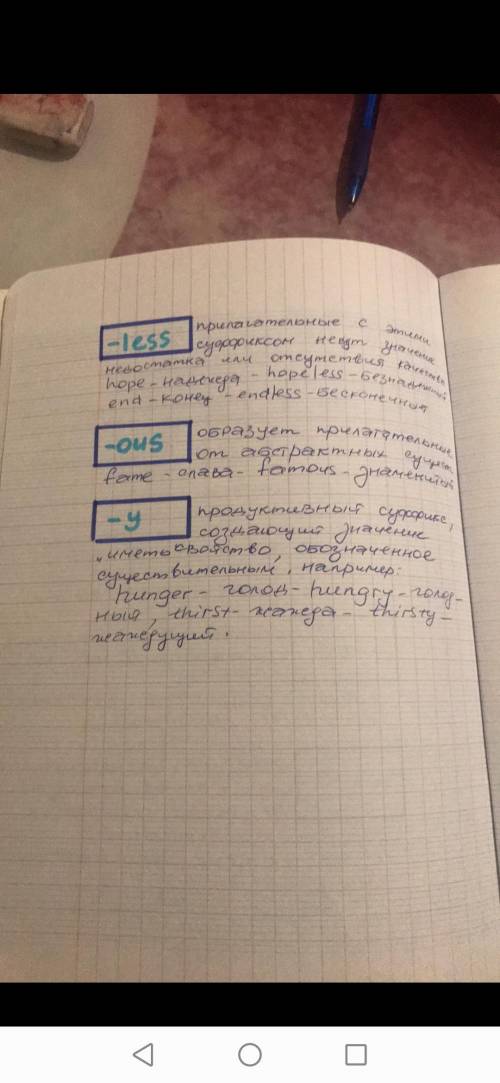 -less прилагательные с этими
суффиксом несут значение
недостатка или отсутствия качества
hope - надежда - hopeless - безнадежный
end - конец - endless - бесконечный
-ous образует прилагательные
от абстрактных сущест.
fame - слава - famous - знаменитый
-y продуктивный суффикс,
создающий значение
„иметь свойство, обозначенное
существительным, например:
hunger - голод - hungry - голод-
ный, thirst - жажда - thirsty -
жаждущий.